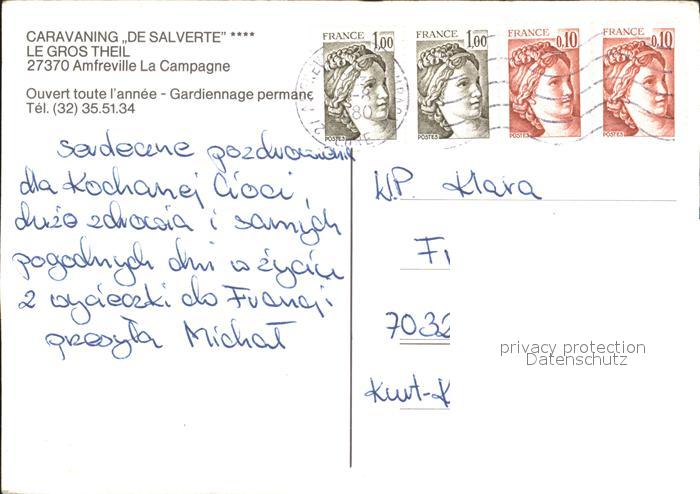 CARAVANING „DE SALVERTE" ****
LE GROS THEIL
27370 Amfreville La Campagne
Ouvert toute l'année - Gardiennage permanent
Tél. (32) 35.51.34
FRANCE 1,00
POSTES
FRANCE 1,00
POSTES
FRANCE 0,10
POSTES
FRANCE 0,10
POSTES
80
Serdeczne pozdrowienia
dla Kochanej Cioci,
dużo zdrowia i samych
pogodnych dni w życiu
z wycieczki do Francji
przesyła Michał
W.P. Klara
Fr
7032
Kurt-K
privacy protection
Datenschutz